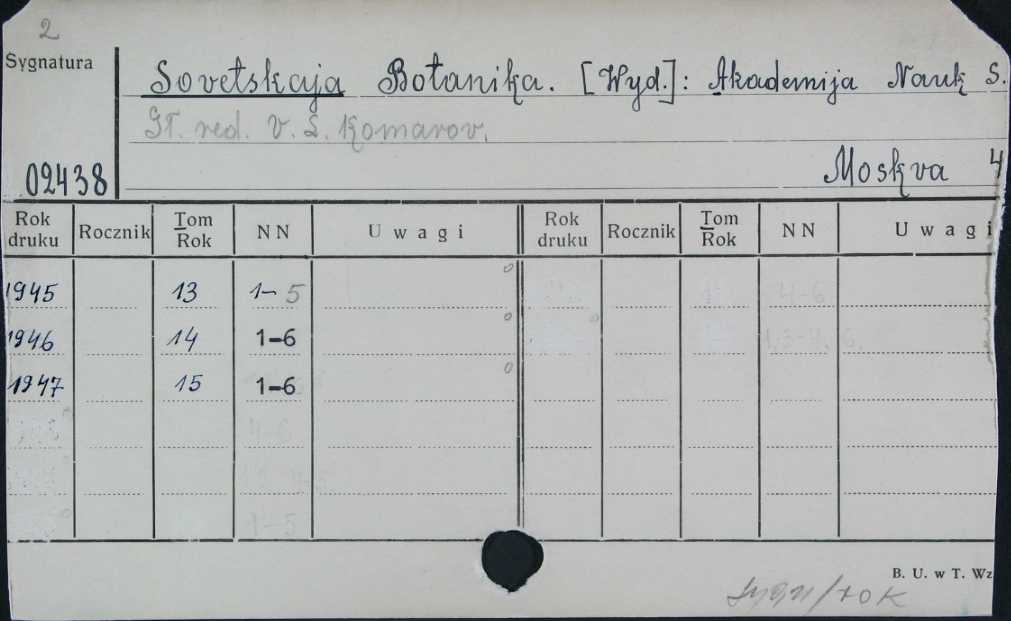 2
Sygnatura
Sovetskaja Botanika. [Wyd.]: Akademija Nauk S.
Gł. red. V. L. Komarov.
02438
Moskva 4
Rok druku Rocznik Tom Rok NN Uwagi Rok druku Rocznik Tom Rok NN Uwagi
1945 13 1-5
1946 14 1-6
1947 15 1-6
4-6
1-5
B. U. w T. Wz
sygn/rok